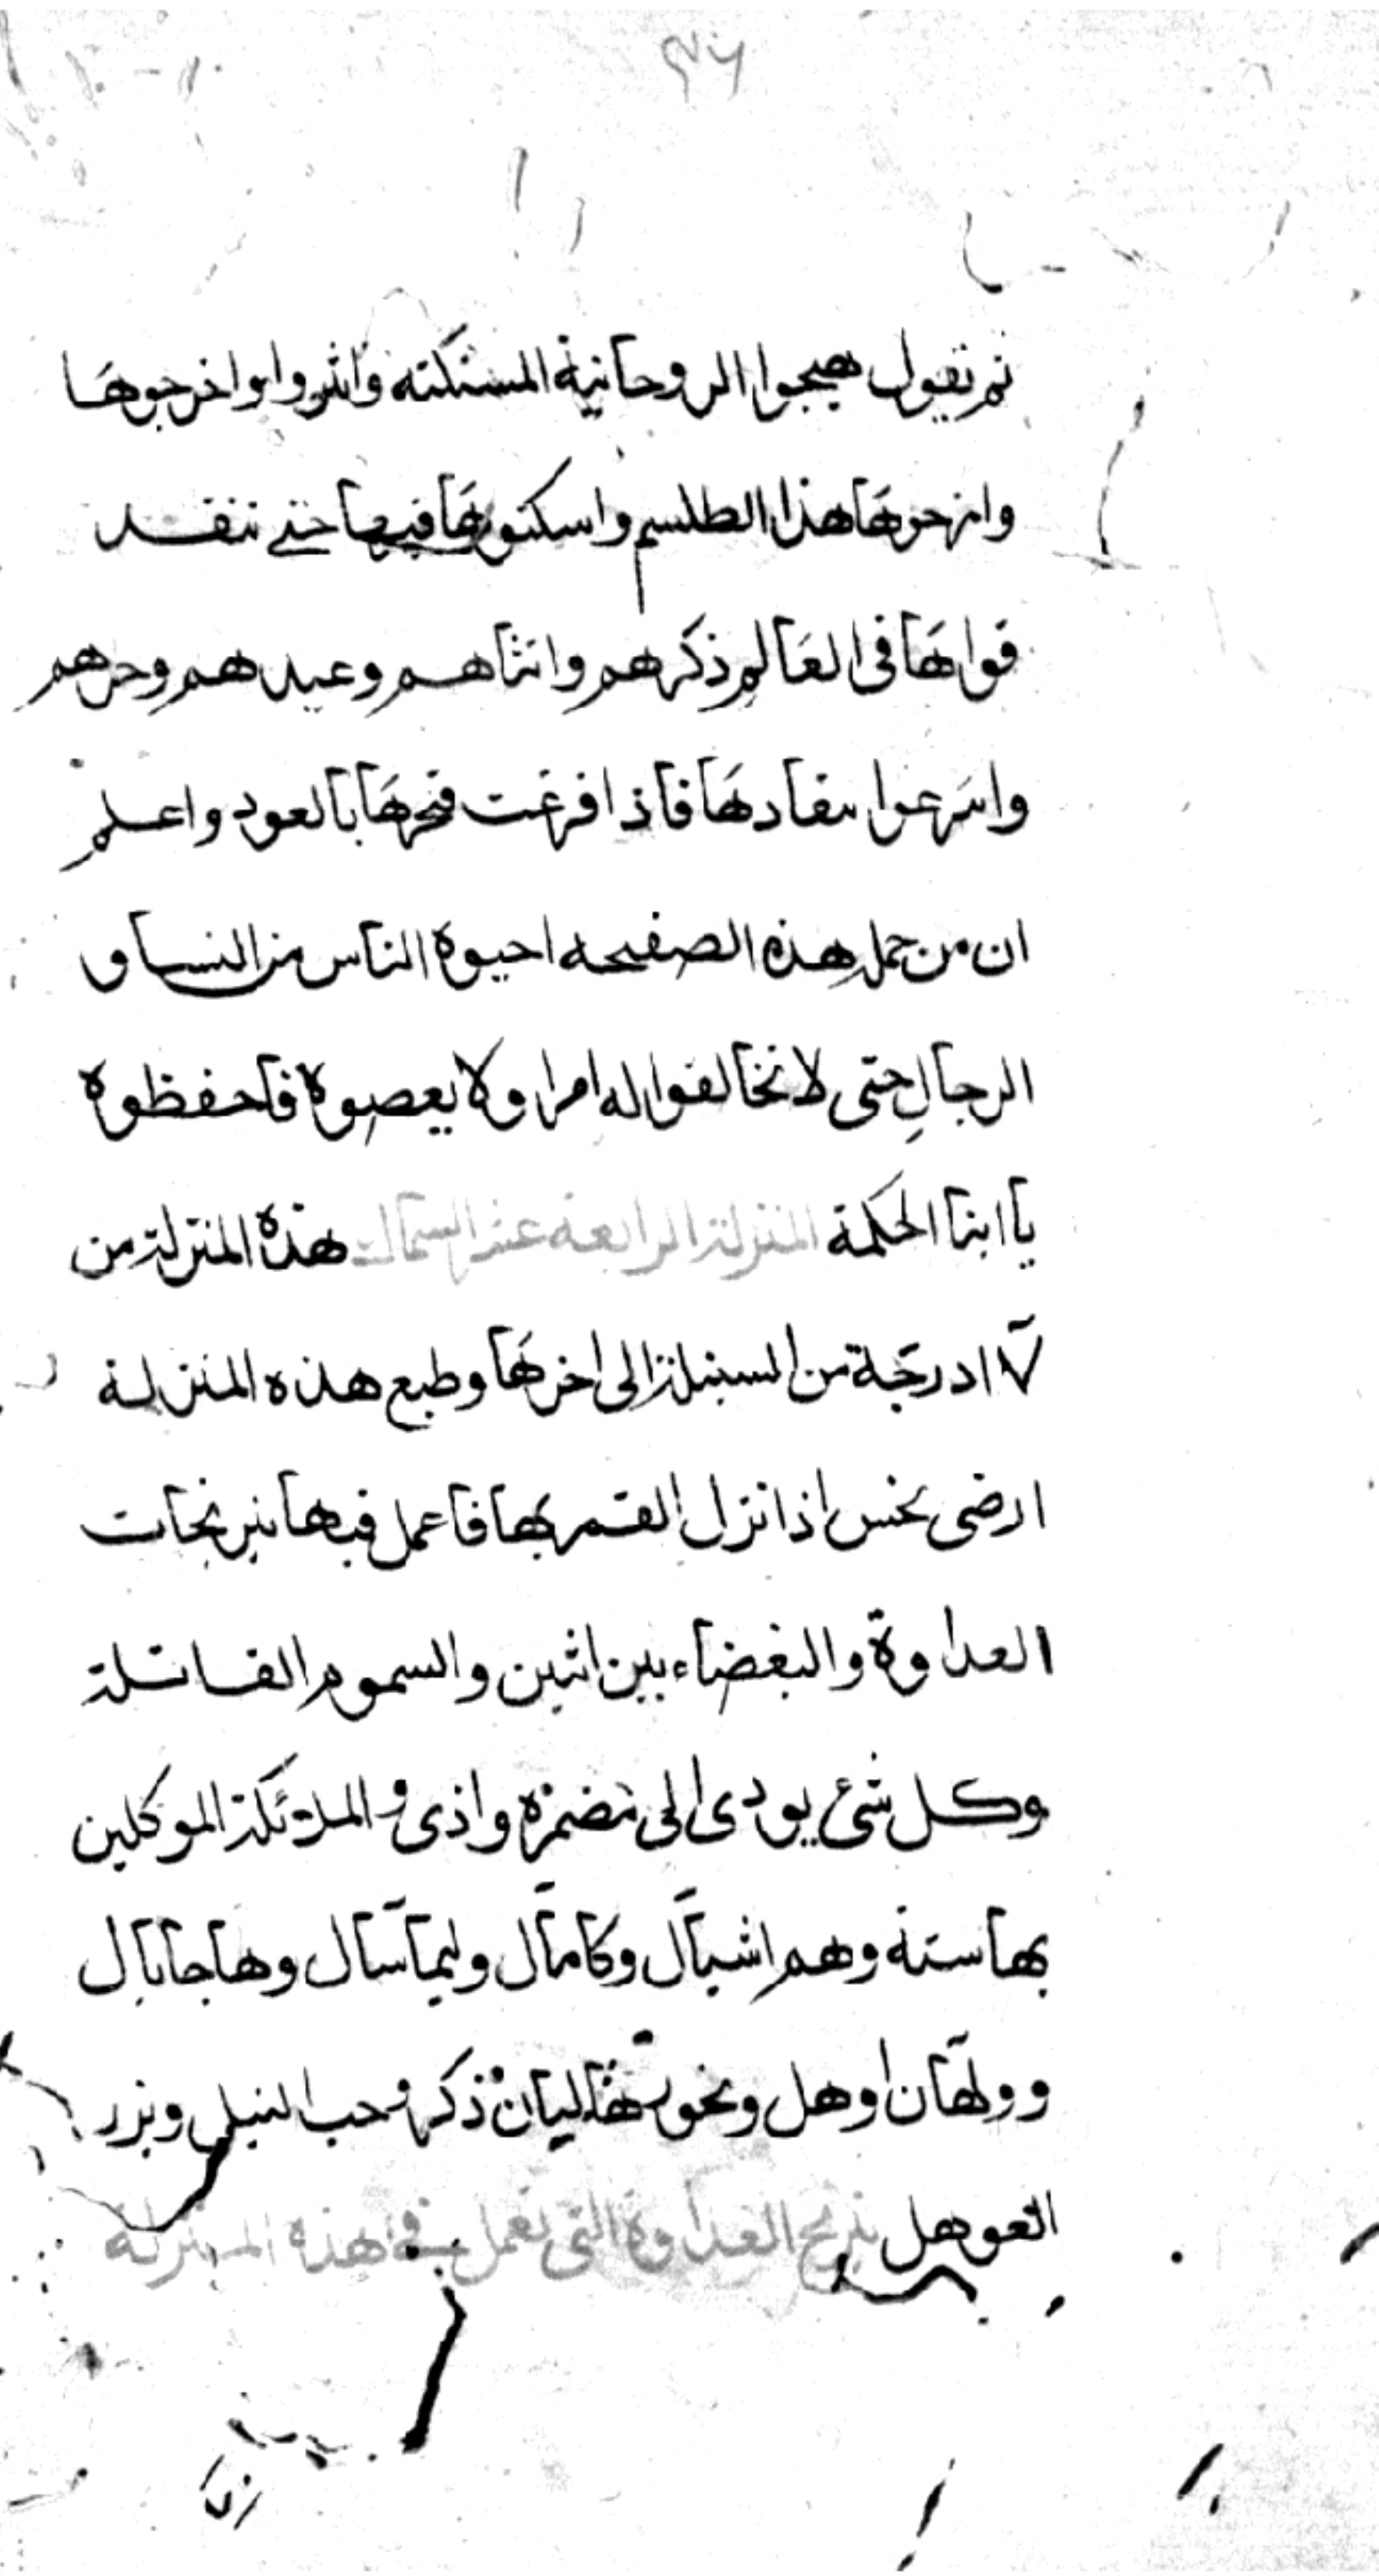 ثم تقول هيجوا الروحانية المستكنه واثروا واخرجوها
وازجوها هذا الطلسم واسكنوها فيها حتى تنفد
قواها فى العالم ذكرهم وانثاهم وعبدهم وحرهم
واسرعوا نفادها فاذا فرغت فبخرها بالعود واعلم
ان من حمل هذه الصفيحه احبوه الناس من النسا و
الرجال حتى لا تخالفوا له امرا ولا يعصوه فاحفظوه
يا ابنا الحكمة المنزلة الرابعة عشر السماك هذه المنزلة من
١٧ درجة من السنبلة الى اخرها وطبع هذه المنزلة
ارضى نحس اذا نزل القمر بها فاعمل فيها نيرنجات
العداوة والبغضاء بين اثنين والسموم القاتلة
وكل شئ يودى الى مضرة واذى و الملائكة الموكلين
بها ستة وهم اشيال وكامال وليماسال وهاجابال
وولهان اوهل وبخور ليان ذكر و حب النيل وبزر
العوهل نيرنج العداوة التى تعمل فى هذه المنزلة